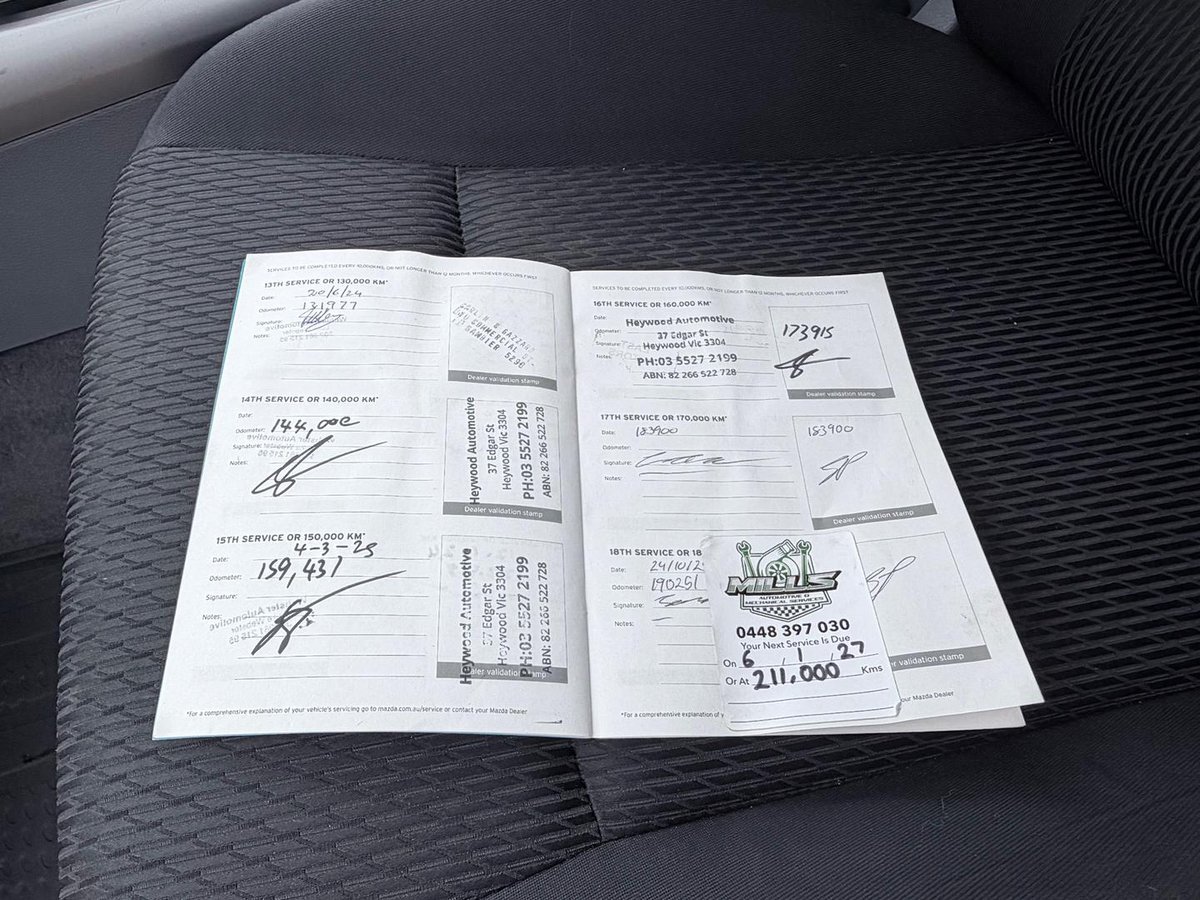 SERVICES TO BE COMPLETED EVERY 10,000KMS, OR NOT LONGER THAN 12 MONTHS, WHICHEVER OCCURS FIRST
13TH SERVICE OR 130,000 KM*
Date: 20/6/24
Odometer: 131977
Signature:
Notes:
COMMERCIAL ST.
GAMBIER 5290
Dealer validation stamp
14TH SERVICE OR 140,000 KM*
Date:
Odometer: 144,000
Signature:
Notes:
Heywood Automotive
37 Edgar St
Heywood Vic 3304
PH:03 5527 2199
ABN: 82 266 522 728
Dealer validation stamp
15TH SERVICE OR 150,000 KM*
Date: 4-3-25
Odometer: 159,431
Signature:
Notes:
Heywood Automotive
37 Edgar St
Heywood Vic 3304
PH:03 5527 2199
ABN: 82 266 522 728
Dealer validation stamp
*For a comprehensive explanation of your vehicle's servicing go to mazda.com.au/service or contact your Mazda Dealer
SERVICES TO BE COMPLETED EVERY 10,000KMS, OR NOT LONGER THAN 12 MONTHS, WHICHEVER OCCURS FIRST
16TH SERVICE OR 160,000 KM*
Date:
Odometer:
Signature:
Notes:
Heywood Automotive
37 Edgar St
Heywood Vic 3304
PH:03 5527 2199
ABN: 82 266 522 728
173915
Dealer validation stamp
17TH SERVICE OR 170,000 KM*
Date: 183900
Odometer:
Signature:
Notes:
183900
SP
Dealer validation stamp
18TH SERVICE OR 18
Date: 24/10/2
Odometer: 190251
Signature:
Notes:
SP
er validation stamp
MILLS
AUTOMOTIVE & MECHANICAL SERVICES
0448 397 030
Your Next Service Is Due
On 6 , 1 , 27
Or At 211,000 Kms
*For a comprehensive explanation of y
our Mazda Dealer